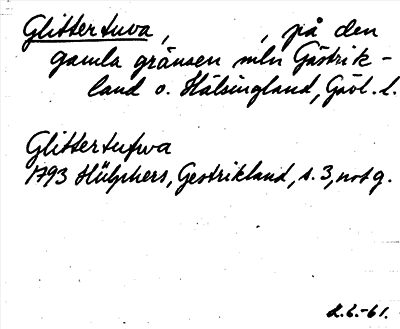 Glittertuva, , på den
gamla gränsen mln Gästrik-
land o. Hälsingland, Gävl. l.
Glittertufwa
1793 Hülphers, Gestrikland, s. 3, not g.
L.L.-61.